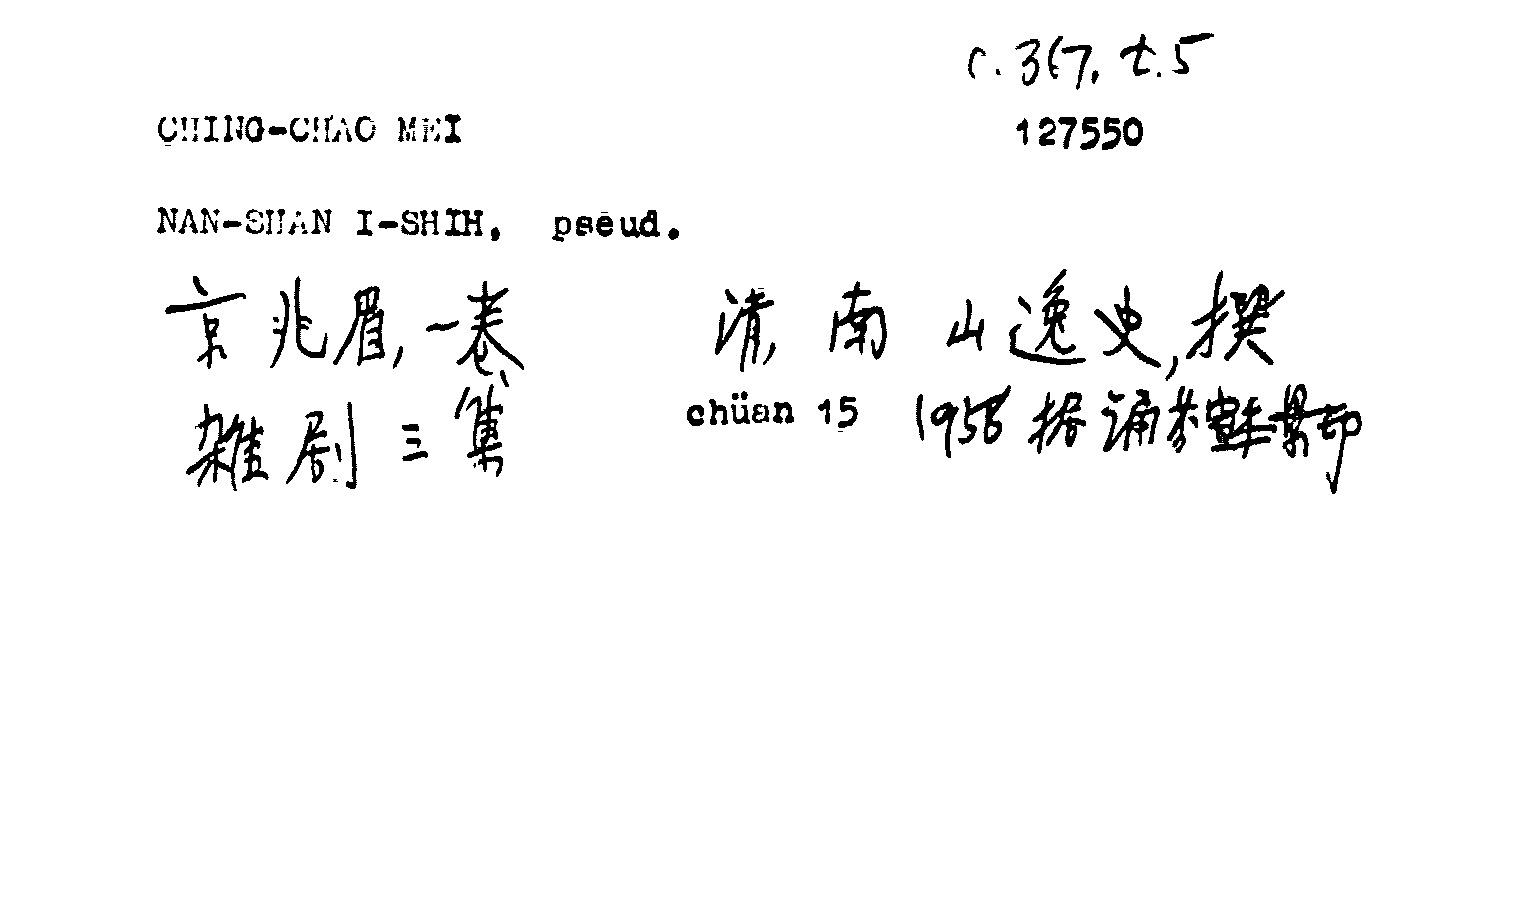 c.367. t.5
CHING-CHAO MEI 127550
NAN-SHAN I-SHIH, pseud.
京兆眉,一卷 清,南山逸史,撰
雑剧三集 chüan 15 1958 据诵芬室本景印